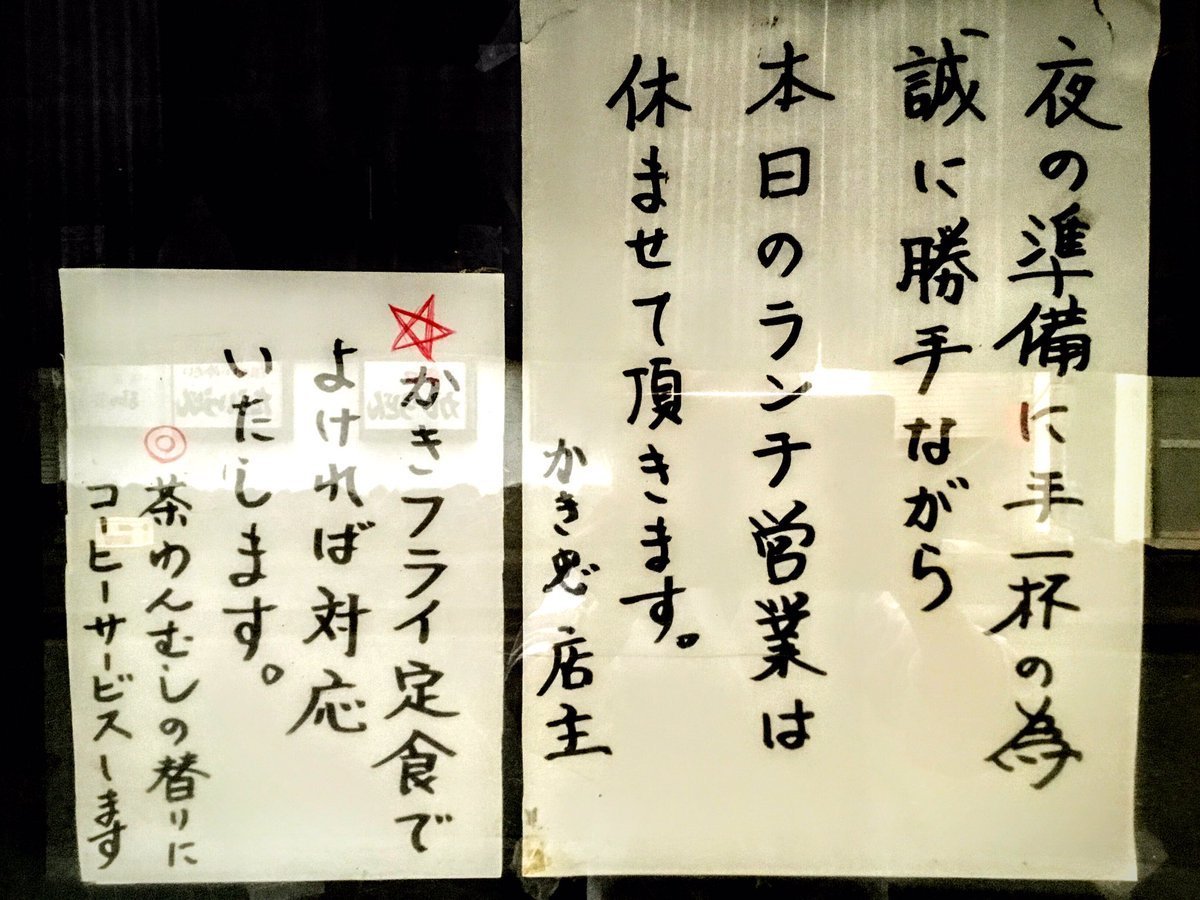 夜の準備に手一杯の為
誠に勝手ながら
本日のランチ営業は
休ませて頂きます。
かき忠 店主
☆かきフライ定食で
よければ対応
いたします。
◎茶わんむしの替りに
コーヒーサービスします